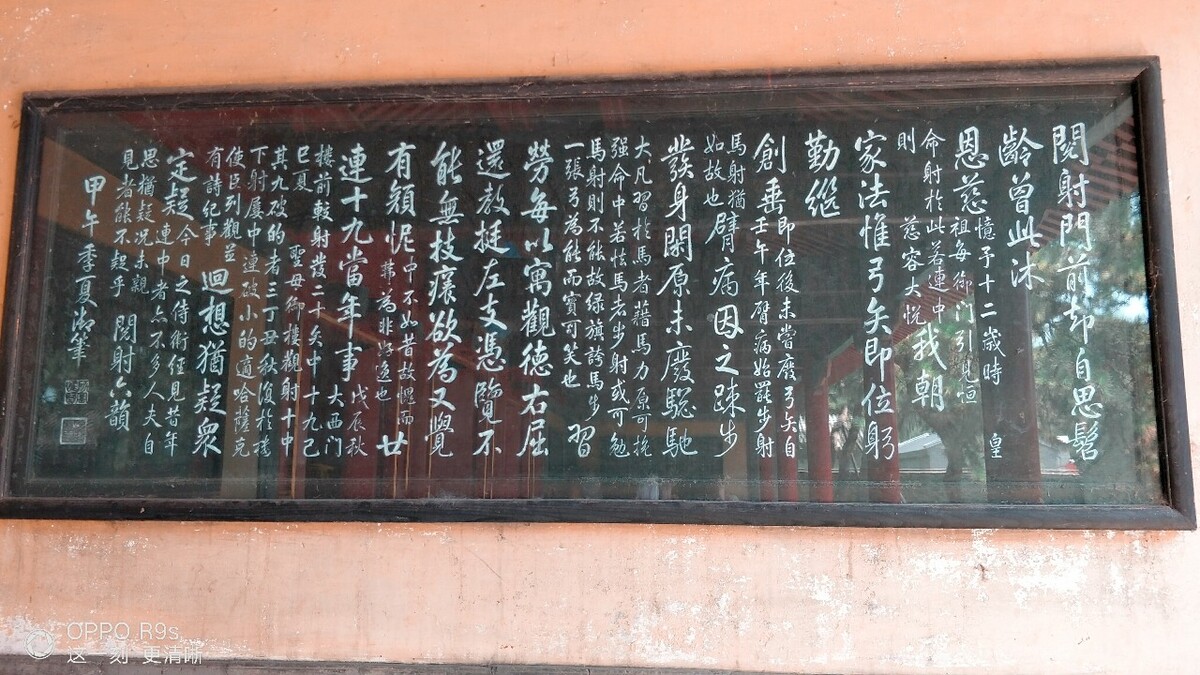 閱射門前却自思髫
齡曾此沐
恩慈
憶予十二歲時 皇
祖每御門引見恒
命射於此若連中
則 慈容大悅
我朝
家法惟弓矢即位躬
勤繼
創垂
即位後未嘗廢弓矢自
壬午年臂病始罷步射
馬射猶
如故也
臂病因之疎步
發身閑原未廢騁馳
大凡習於馬者藉馬力原可挽
强命中若怯馬者步射或可勉
馬射則不能故綠旗誇馬步
一張弓為能而實可笑也
習
勞每以寓觀德右屈
還教挺左支憑覽不
能無技癢欲為又覺
有顏忸
中不如昔故惧而
弗為非好逸也
廿
連十九當年事
戊辰秋
大西門
樓前較射發二十矢中十九己
巳夏 聖母御樓觀射十中
其九破的者三丁丑秋復於樓
下射屢中連破小的適哈薩克
使臣列觀並
有詩紀事
迴想猶疑衆
定疑
今日之侍衛經見昔年
連中者亦不多人夫自
思猶疑况未親
見者能不疑乎
閱射六韻
甲午季夏御筆
OPPO R9s
这一刻 更清晰